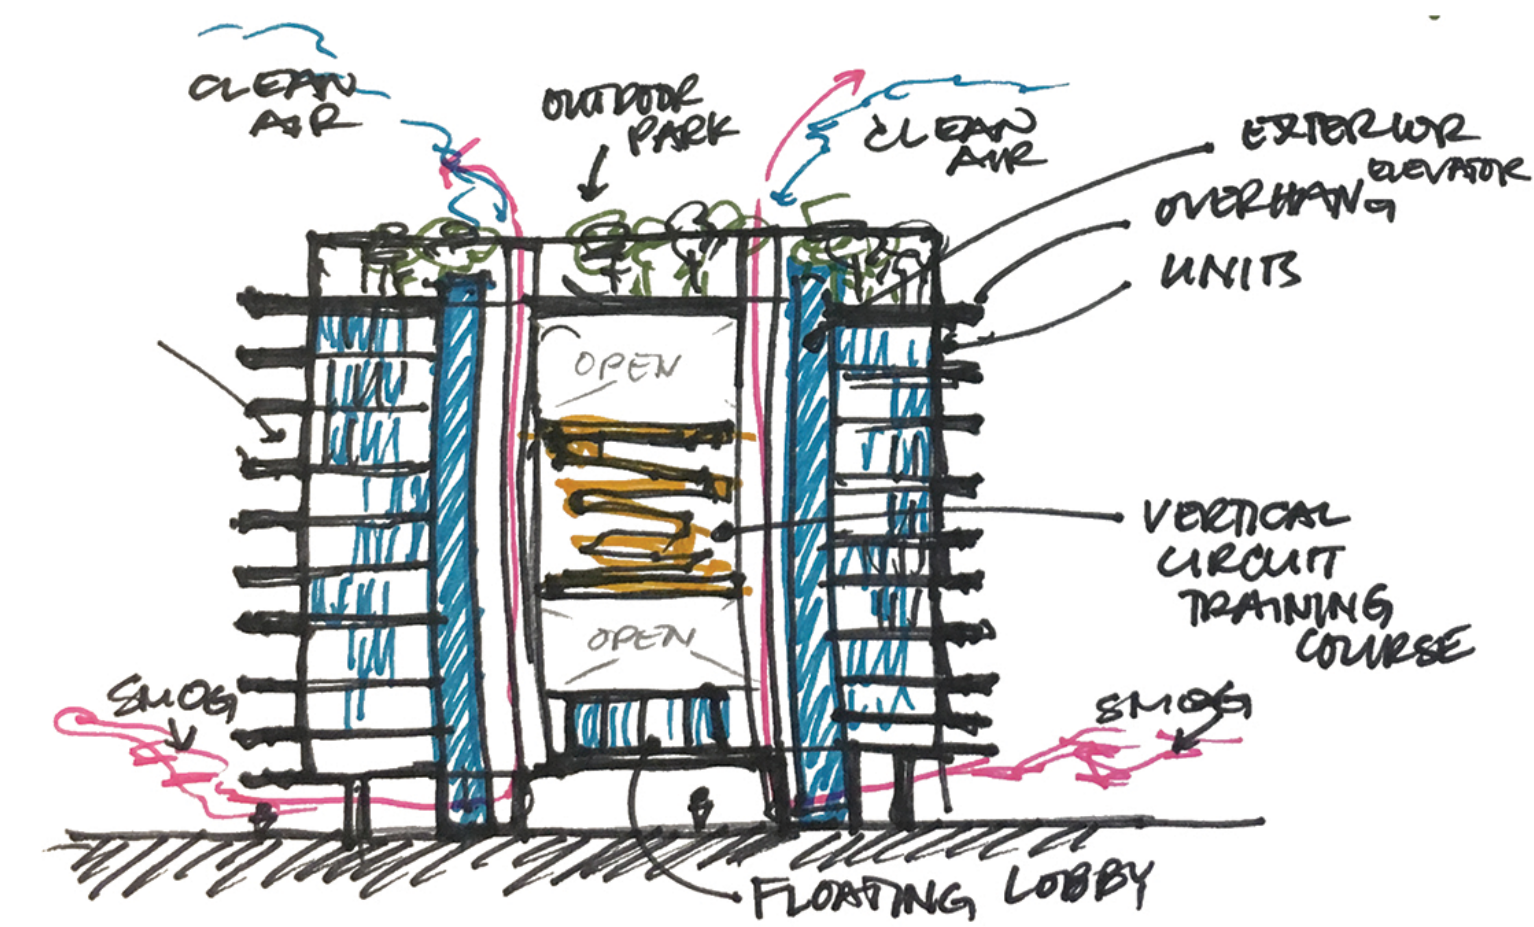 CLEAN
AIR
OUTDOOR
PARK
CLEAN
AIR
EXTERIOR
ELEVATOR
OVERHANG
UNITS
OPEN
VERTICAL
CIRCUIT
TRAINING
COURSE
OPEN
SMOG
SMOG
FLOATING LOBBY